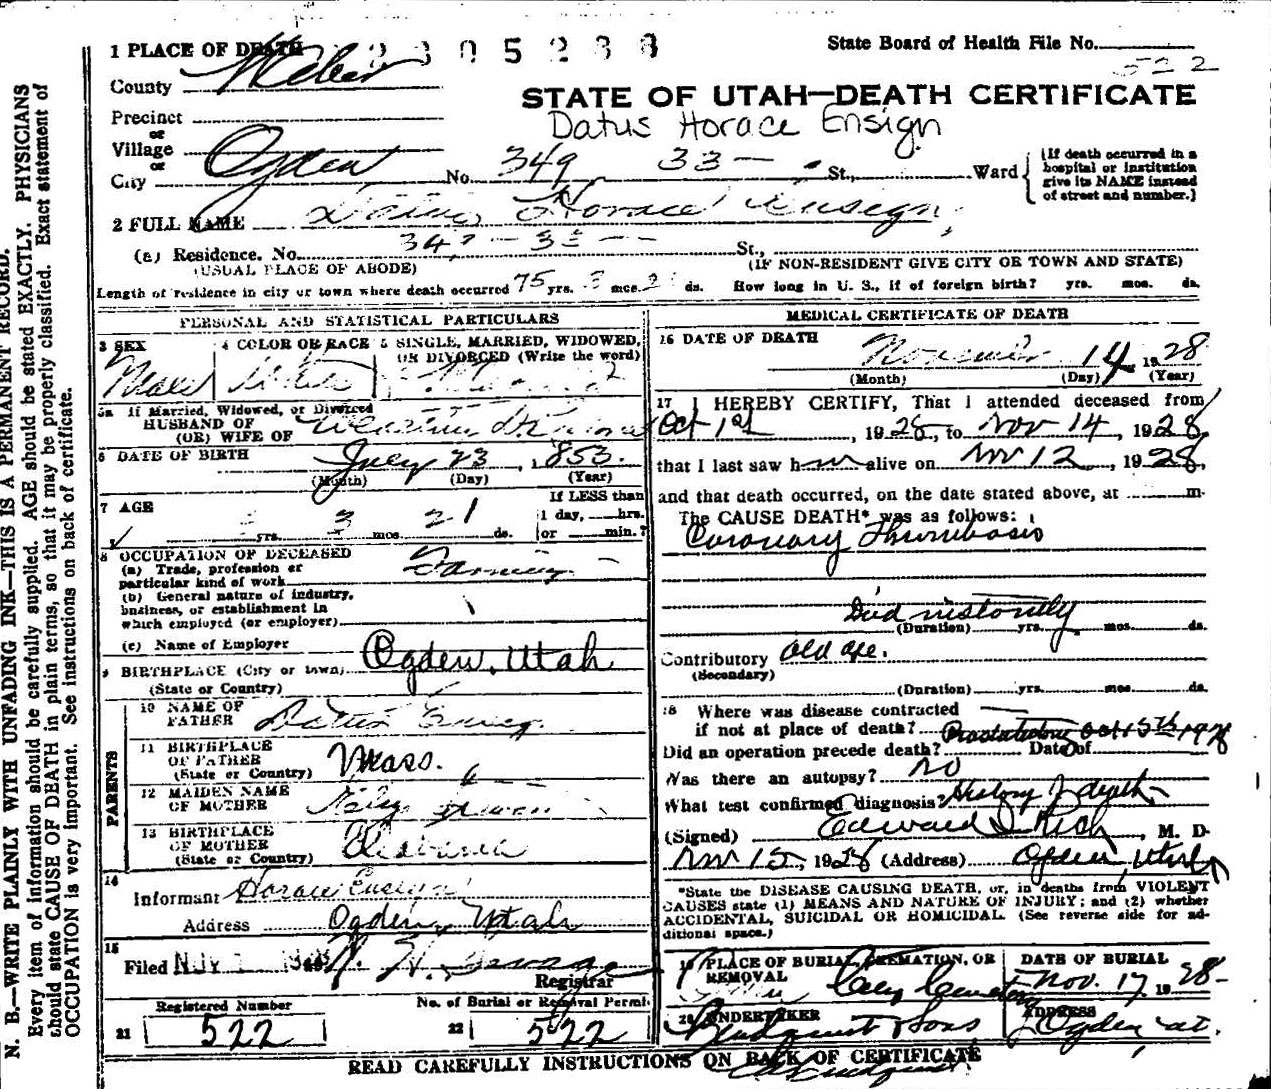 1 PLACE OF DEATH 2305238 State Board of Health File No.
County Weber 522
STATE OF UTAH—DEATH CERTIFICATE
Precinct
Datus Horace Ensign
or
Village
or
City Ogden No. 349 33 — St., Ward
(If death occurred in a hospital or institution give its NAME instead of street and number.)
2 FULL NAME Datus Horace Ensign
(a) Residence. No. 349 — 33 — St.,
(USUAL PLACE OF ABODE) (IF NON-RESIDENT GIVE CITY OR TOWN AND STATE)
Length of residence in city or town where death occurred 75 yrs. 3 mos. ds. How long in U. S., if of foreign birth? yrs. mos. ds.
PERSONAL AND STATISTICAL PARTICULARS
3 SEX 4 COLOR OR RACE 5 SINGLE, MARRIED, WIDOWED, OR DIVORCED (Write the word)
Male White
5a If Married, Widowed, or Divorced
HUSBAND OF
(OR) WIFE OF
6 DATE OF BIRTH July 23, 1853.
(Month) (Day) (Year)
7 AGE 3 21
yrs. mos. ds.
If LESS than
1 day, hrs.
or min.?
8 OCCUPATION OF DECEASED
(a) Trade, profession or
particular kind of work Farming
(b) General nature of industry,
business, or establishment in
which employed (or employer)
(c) Name of Employer
9 BIRTHPLACE (City or town) Ogden, Utah
(State or Country)
PARENTS
10 NAME OF
FATHER Datus Ensign
11 BIRTHPLACE
OF FATHER Mass.
(State or Country)
12 MAIDEN NAME
OF MOTHER
13 BIRTHPLACE
OF MOTHER Alabama
(State or Country)
14
Informant Horace Ensign
Address Ogden, Utah
15
Filed NOV
Registrar
Registered Number No. of Burial or Removal Permit
21 522 22 522
MEDICAL CERTIFICATE OF DEATH
16 DATE OF DEATH November 14 1928
(Month) (Day) (Year)
17 I HEREBY CERTIFY, That I attended deceased from
Oct 1st, 1928, to Nov 14, 1928,
that I last saw him alive on Nov 12, 1928,
and that death occurred, on the date stated above, at m.
The CAUSE DEATH* was as follows:
Coronary Thrombosis
Died instantly
(Duration) yrs. mos. ds.
Contributory old age.
(Secondary)
(Duration) yrs. mos. ds.
18 Where was disease contracted
if not at place of death? Oct 15th 1928
Did an operation precede death? Date of
Was there an autopsy? no
What test confirmed diagnosis? History
(Signed) Edward I. Rich, M. D.
Nov 15, 1928 (Address) Ogden, Utah
*State the DISEASE CAUSING DEATH, or, in deaths from VIOLENT
CAUSES state (1) MEANS AND NATURE OF INJURY; and (2) whether
ACCIDENTAL, SUICIDAL OR HOMICIDAL. (See reverse side for additional space.)
19 PLACE OF BURIAL, CREMATION, OR REMOVAL DATE OF BURIAL
City Cemetery Nov. 17 1928
20 UNDERTAKER ADDRESS
Lindquist & Sons Ogden, Ut.
READ CAREFULLY INSTRUCTIONS ON BACK OF CERTIFICATE
N. B.—WRITE PLAINLY WITH UNFADING INK—THIS IS A PERMANENT RECORD.
Every item of information should be carefully supplied. AGE should be stated EXACTLY. PHYSICIANS
should state CAUSE OF DEATH in plain terms, so that it may be properly classified. Exact statement of
OCCUPATION is very important. See instructions on back of certificate.